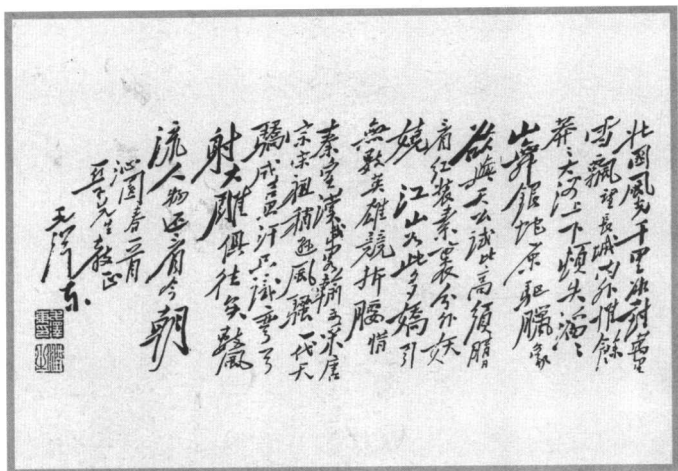 北國風光千里冰封萬里
雪飄望長城內外惟餘
莽々大河上下頓失滔々
山舞銀蛇原駆臘象
欲與天公試比高須晴日
看紅装素裹分外妖
嬈 江山如此多嬌引
無數英雄競折腰惜
秦皇漢武略輸文采唐
宗宋祖稍遜風騷一代天
驕成吉思汗只識彎弓
射大雕俱往矣數風
流人物還看今朝
沁園春一首
亞子先生教正
毛澤东